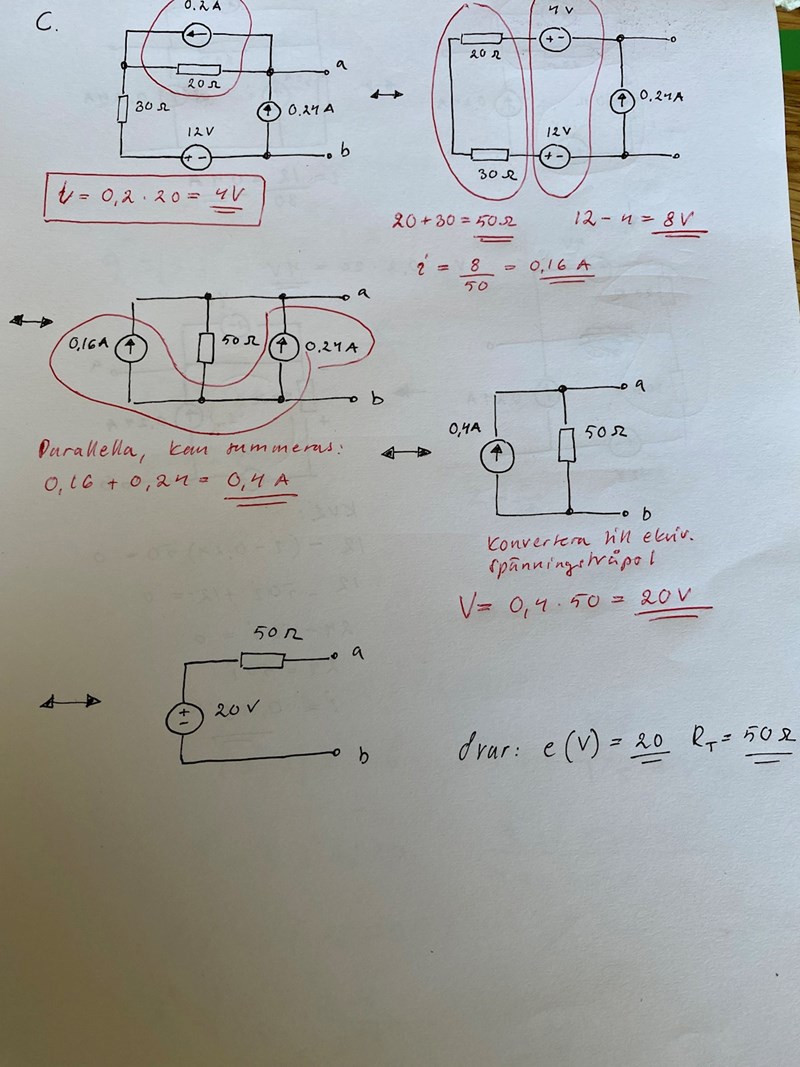 C.
0.2A
20Ω
a
30Ω
0.24A
12V
+ -
b
V = 0,2 · 20 = 4V
4V
20Ω
+ -
0.24A
12V
+ -
30Ω
20+30 = 50Ω
12 - 4 = 8V
i = 8/50 = 0,16 A
a
0,16A
50Ω
0.24A
b
Parallella, kan summeras:
0,16 + 0,24 = 0,4 A
a
0,4A
50Ω
b
Konvertera till ekviv.
spänningstvåpol
V = 0,4 · 50 = 20V
50Ω
a
+
-
20V
b
Svar: e(V) = 20 R_T = 50Ω